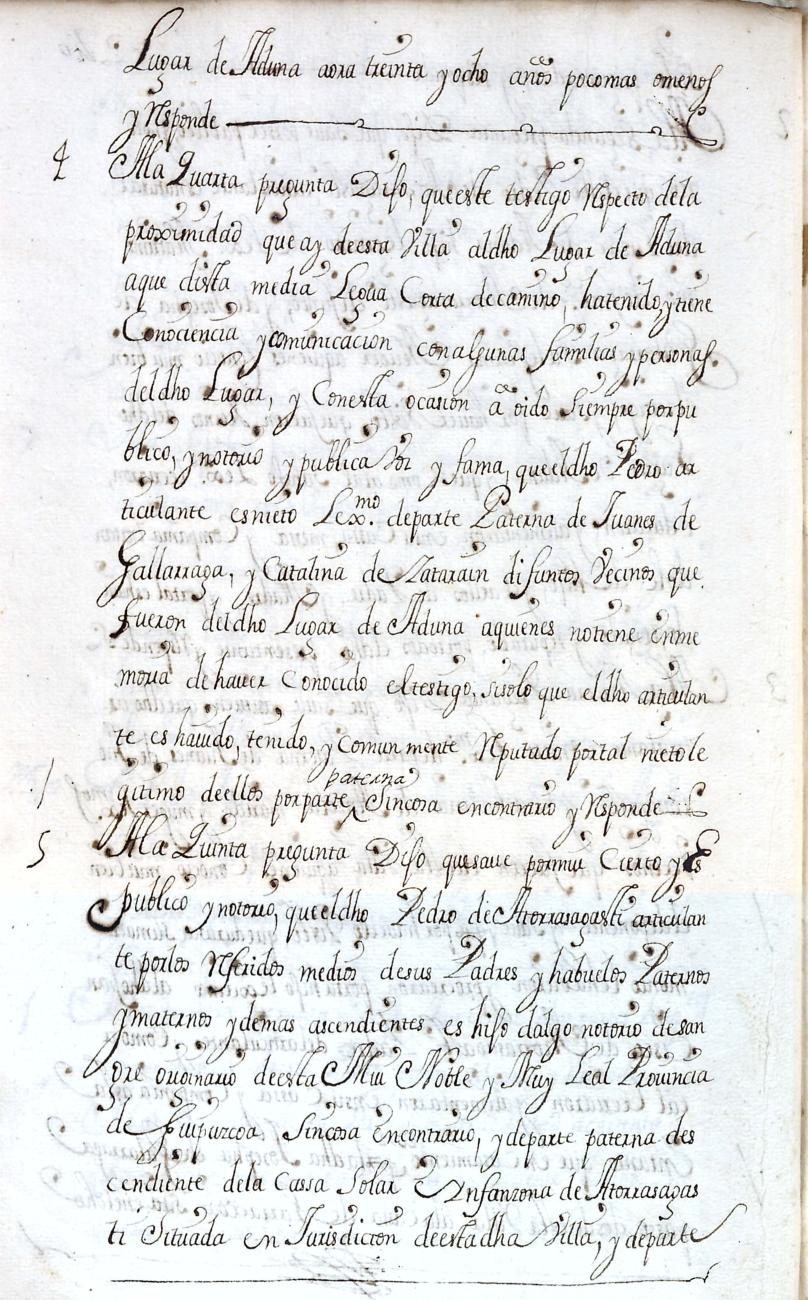 Lugar de Aduna aora treinta y ocho años poco mas o menos
y Responde
4 A la Quarta pregunta Dijo, que este testigo Respecto de la
proximidad que ay de esta Villa al dho Lugar de Aduna
a que dista media Legua Corta de camino, ha tenido, y tiene
Conociencia y comunicacion con algunas familias y personas
del dho Lugar, y Con esta ocasion a oido siempre por pu
blico, y notorio y publica Voz y fama, que el dho Pedro ar
ticulante es nieto Lexmo. de parte Paterna de Juanes de
Gallarraga, y Catalina de Zatarain difuntos Vecinos que
fueron del dho Lugar de Aduna a quienes no tiene en me
moria de haver Conocido el testigo, si solo que el dho articulan
te es havido, tenido, y comunmente Reputado por tal nieto le
paterna
gitimo de ellos por parte ^ Sin cosa en contrario y Responde
5 A la Quinta pregunta Dijo que save por mui Cierto y es
publico y notorio, que el dho Pedro de Atorrasagasti articulan
te por los Referidos medios de sus Padres y habuelos Paternos
y maternos y demas ascendientes es hijo dalgo notorio de san
gre originario de esta Mui Noble y Muy Leal Provincia
de Guipuzcoa, Sin cosa en contrario, y de parte paterna des
cendiente de la Cassa Solar E Ynfanzona de Atorrasagas
ti Situada en Jurisdicion de esta dha Villa, y de parte